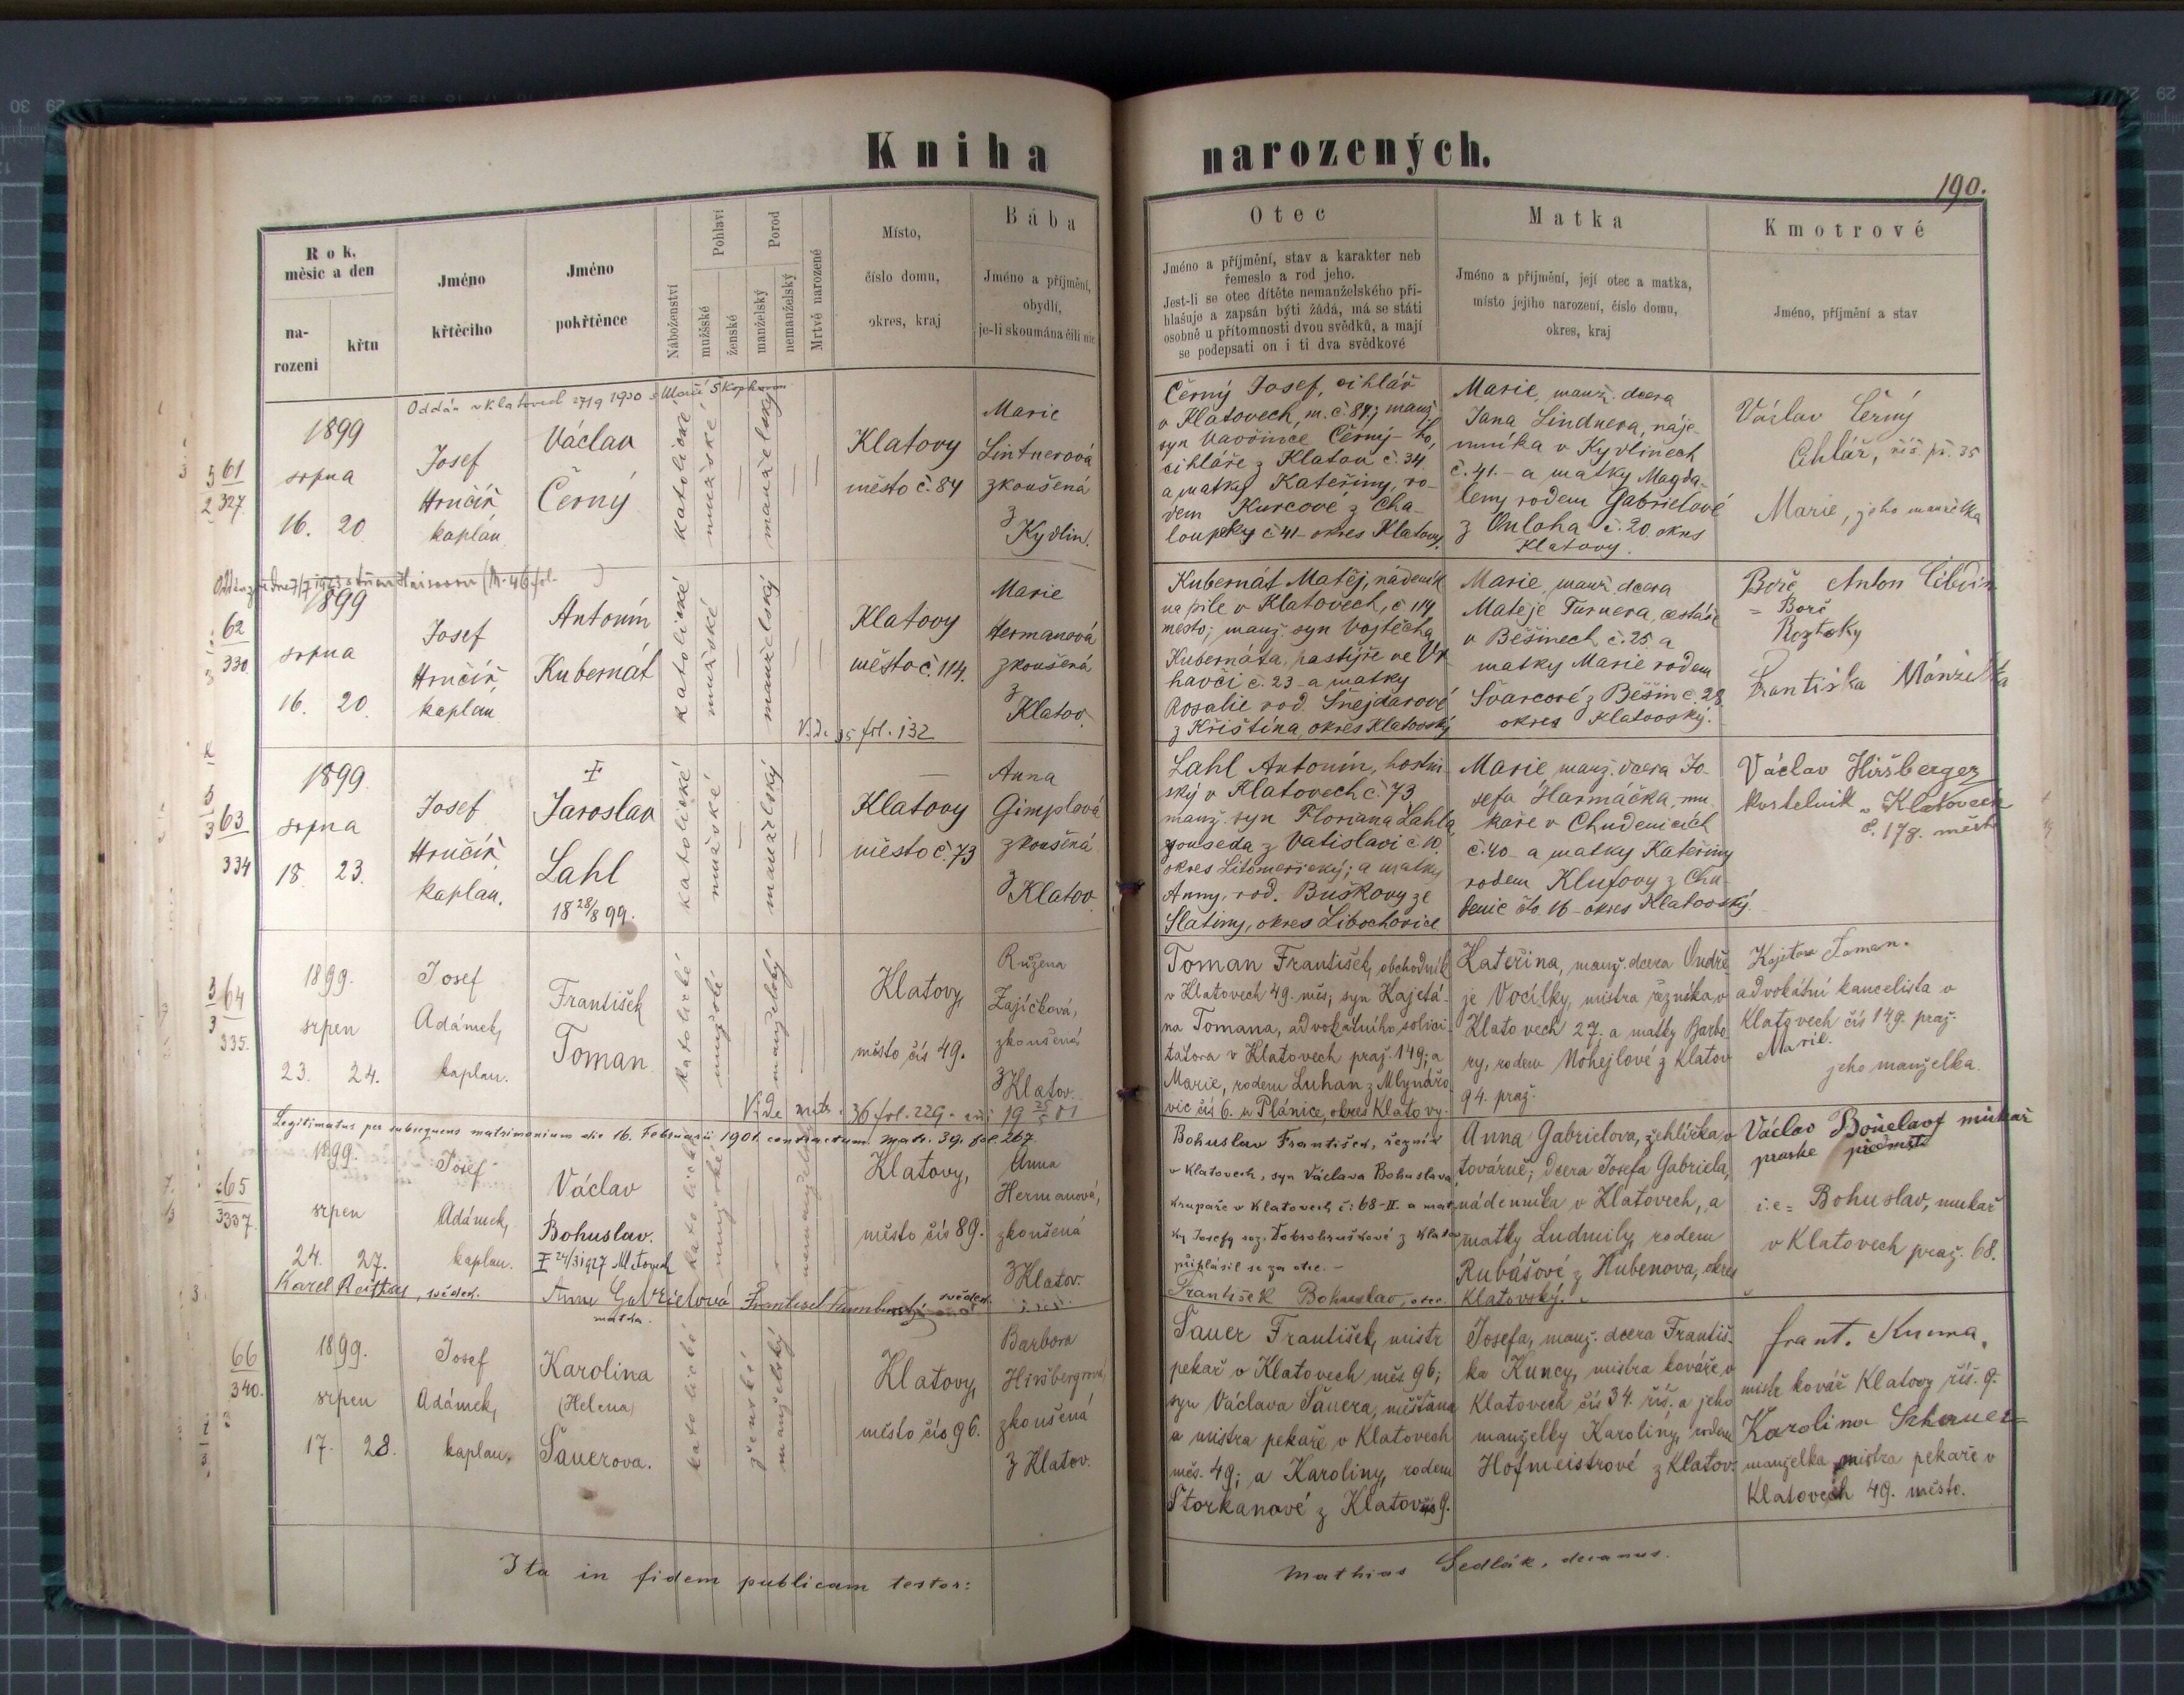 Kniha narozených.
190.
Rok, měsíc a den
narození
křtu
Jméno křtěcího
Jméno pokřtěnce
Náboženství
Pohlaví
mužské
ženské
Porod
manželský
nemanželský
Mrtvě narozené
Místo,
číslo domu,
okres, kraj
Bába
Jméno a příjmění,
obydlí,
je-li skoumána čili nic
Otec
Jméno a příjmění, stav a karakter neb
řemeslo a rod jeho.
Jest-li se otec dítěte nemanželského při-
hlašuje a zapsán býti žádá, má se státi
osobně u přítomnosti dvou svědků, a mají
se podepsati on i ti dva svědkové
Matka
Jméno a příjmění, její otec a matka,
místo jejího narození, číslo domu,
okres, kraj
Kmotrové
Jméno, příjmění a stav
Oddán v Klatovech
61
327.
1899
srpna
16. 20
Josef
Hručíř,
kaplán
Václav
Černý
katolické
mužské
manželský
Klatovy
město č. 84
Marie
Lintnerová
zkoušená
z
Kydlin.
Černý Josef, cihlář
v Klatovech, m. č. 84; manž.
syn Vavřince Černý-ho,
cihláře z Klatov č. 34.
a matky Kateřiny, ro-
dem Kurcové z Cha-
loupky č 41 - okres Klatovy.
Marie, manž. dcera
Jana Lindnera, náje-
mníka v Kydlinech
č. 41. - a matky Magda-
leny rodem Gabrielové
č. 20. okres
Klatovy.
Václav Černý
Cihlář, říš. př. 35
Marie, jeho manželka
62
330
1899
srpna
16. 20.
Josef
Hručíř,
kaplan
Antonín
Kubernát
katolické
mužské
manželský
Klatovy
město č. 114.
Marie
Hermanová
zkoušená
z
Klatov.
Kubernát Matěj, nádeník
na pile v Klatovech, č 114
město; manž. syn Vojtěcha
Kubernáta, pastýře ve Vr-
havči č. 23 - a matky
Rosalie rod. Šnejdarové
z Křištína, okres Klatovský
Marie, manž. dcera
Matěje Turnera, cestáře
v Běšinech č. 25. a
matky Marie rodem
Švarcové z Běšin č. 28.
okres Klatovský.
Boře Anton
= Boře
Roztoky
Františka
fol. 132
63
334
1899
srpna
18. 23.
Josef
Hručíř,
kaplan.
Jaroslav
Lahl
18 28/8 99.
katolické
mužské
manželský
Klatovy
město č. 73
Anna
Gimplová
zkoušená
z
Klatov
Lahl Antonín, hostin-
ský v Klatovech č. 73
manž. syn Floriana Lahla
souseda z Vatislavi č. 10.
okres Litoměřický; a matky
Anny, rod. Buškovy ze
Slatiny, okres Libochovice
Marie, manž. dcera Jo-
sefa Harmáčka, mu-
kaře v Chudenicích
č. 40 - a matky Kateřiny
rodem Klufovy z Chu-
denic čto. 16 - okres Klatovský.
Václav Hiršberger
kostelník v Klatovech
č. 178. město
64
335.
1899.
srpen
23. 24.
Josef
Adámek,
kaplan.
František
Toman
katolické
mužské
manželský
Klatovy,
město čís 49.
Růžena
Zajíčková,
zkoušená
z Klatov.
Toman František, obchodník
v Klatovech 49. měs; syn Kajetá-
na Tomana, advokátního solici-
tátora v Klatovech praž. 149; a
Marie, rodem Luhan z Mlynářo-
vic čís 6. u Plánice, okres Klatovy.
Kateřina, manž. dcera Ondře-
je Vocílky, mistra řezníka v
Klatovech 27; a matky Barbo-
ry, rodem Mohejlové z Klatov
94. praž.
Kajetan Toman.
advokátní kancelista v
Klatovech čís 149. praž.
Marie.
jeho manželka.
Vide matr. 36 fol. 229.
Legitimatus per subsequens matrimonium die 16. Februarii 1901. contractum. Matr. 39. fol. 267.
65
337.
1899.
srpen
24. 27.
Josef
Adámek,
kaplan.
Václav
Bohuslav.
katolické
mužské
nemanželský
Klatovy,
město čís 89.
Anna
Hermanová,
zkoušená
z Klatov.
Bohuslav František, řezník
v Klatovech, syn Václava Bohuslava,
krupaře v Klatovech č: 68-II. a mat-
ky Josefy roz. Dobrohruškové z Klatov
přihlásil se za otce. -
František Bohuslav, otec.
Anna Gabrielova, žehlířka v
továrně; dcera Josefa Gabriela,
nádenníka v Klatovech, a
matky Ludmily, rodem
Rubášové z Hubenova, okres
Klatovský.
Václav mukař
pražke předměstí
i.e = Bohuslav, mukař
v Klatovech praž. 68.
Karel svědek.
Anna Gabrielová
matka.
svědek.
66
340.
1899.
srpen
17. 28.
Josef
Adámek,
kaplan.
Karolina
(Helena)
Šauerova.
katolické
ženské
manželský
Klatovy,
město čís 96.
Barbora
Hiršbergrová,
zkoušená
z Klatov.
Šauer František, mistr
pekař v Klatovech měs 96;
syn Václava Šauera, měšťana
a mistra pekaře v Klatovech
měs. 49; a Karoliny, rodem
Štorkanové z Klatov
Josefa, manž. dcera Františ-
ka Kuncy, mistra kováře v
Klatovech čís 34. říš. a jeho
manželky Karoliny, rodem
Hofmeistrové z Klatov.
frant. Kunna,
mistr kovář Klatovy říš. 9.
Karolina Schauer=
manželka mistra pekaře v
Klatovech 49. město.
Ita in fidem publicam testor:
Mathias Sedlák, decanus.